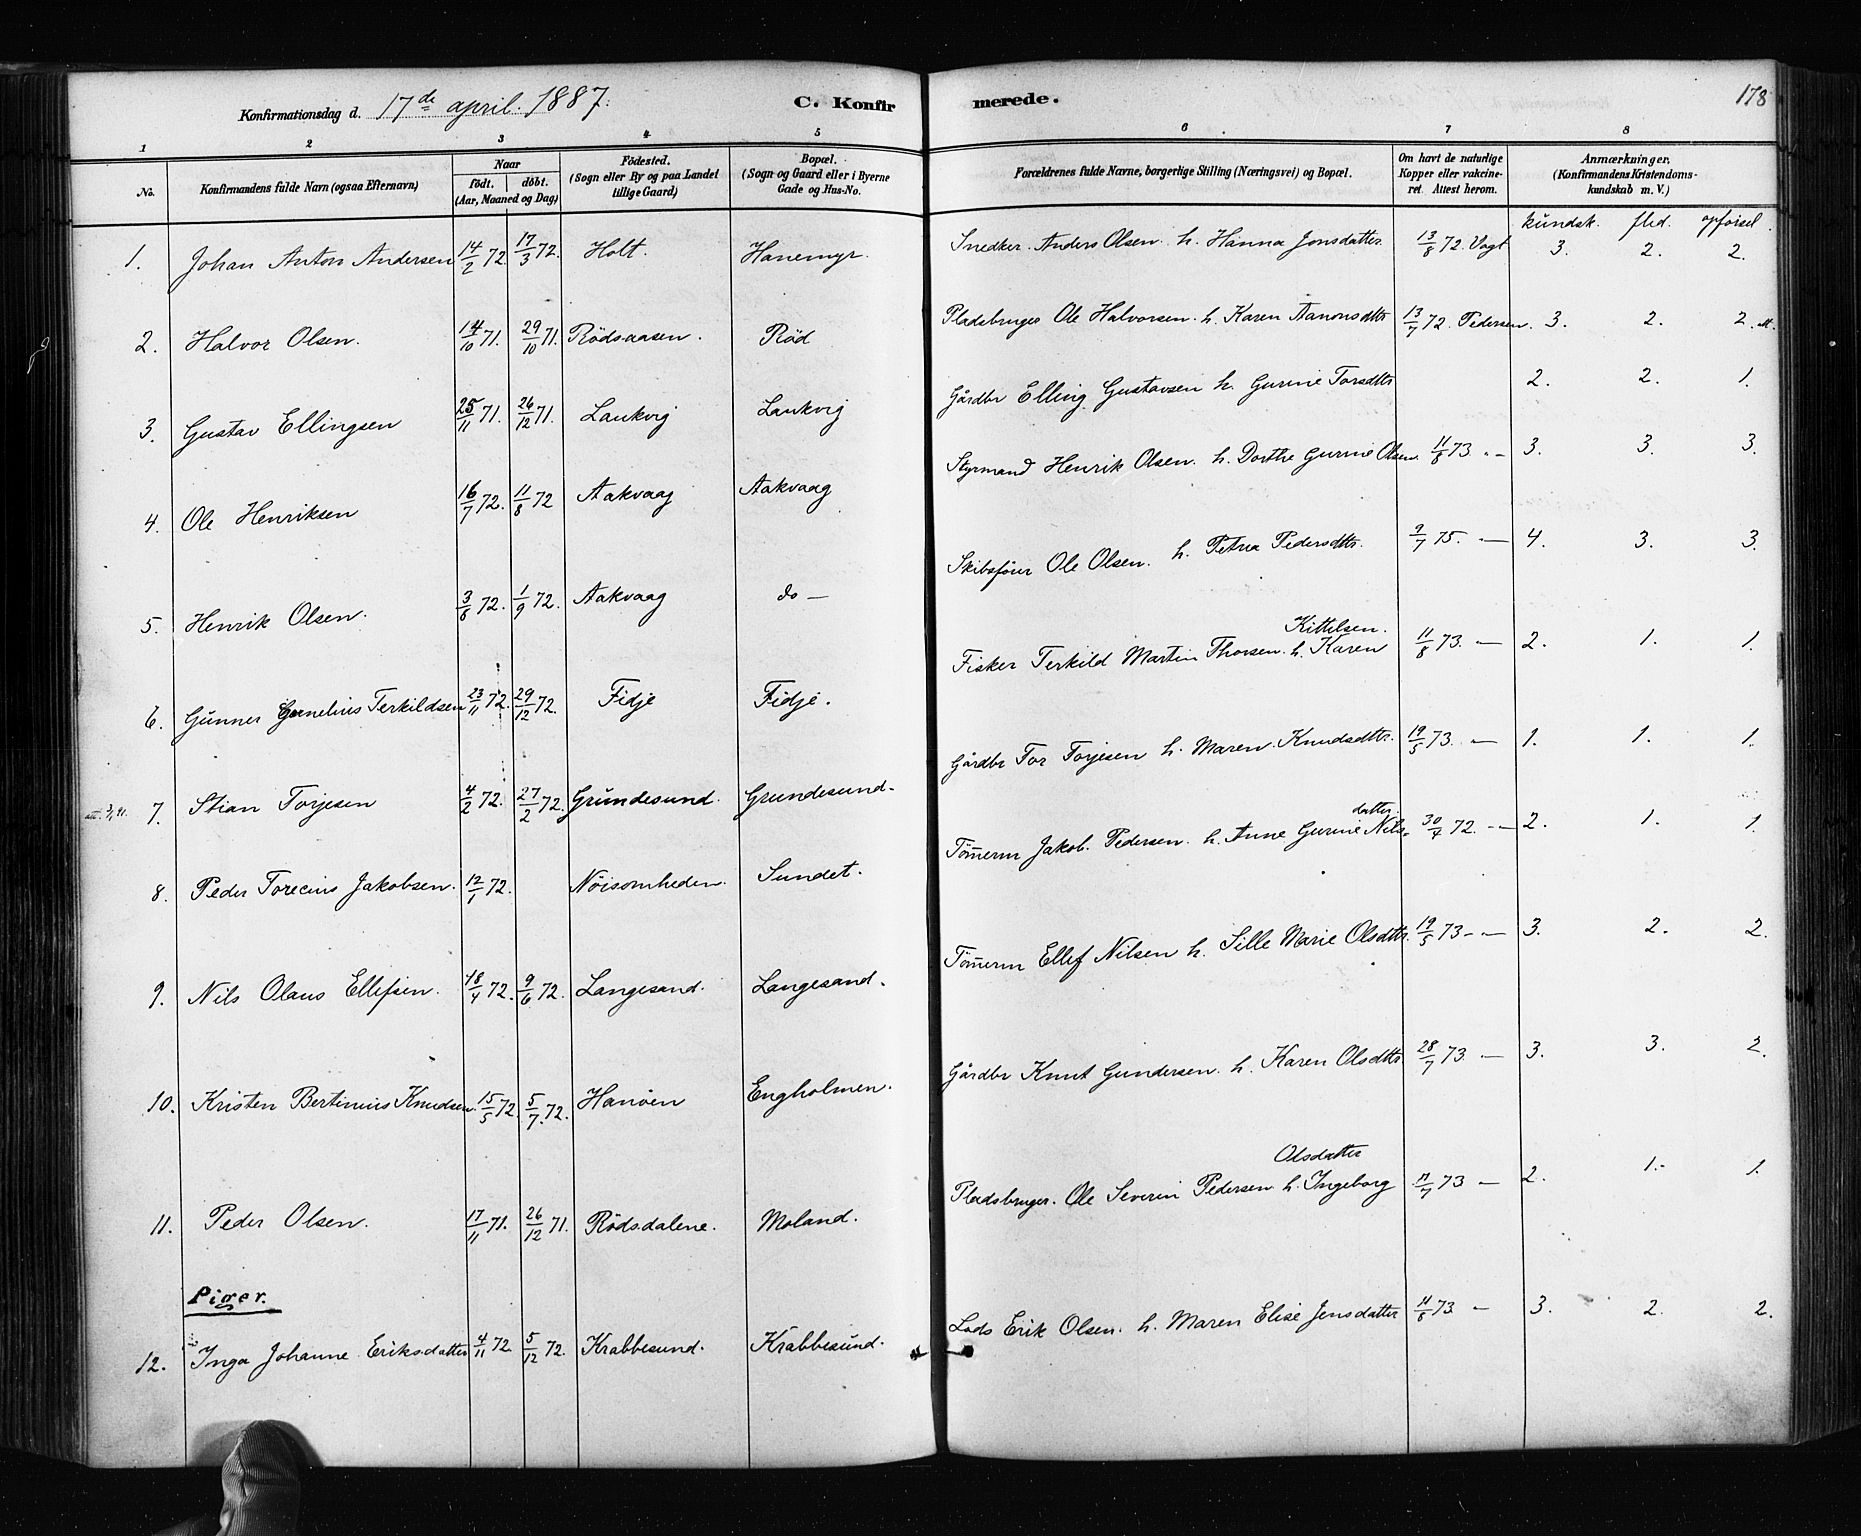 Konfirmationsdag d. 17de april. 1887. C. Konfirmerede. 178
1 2 3 4 5 6 7 8
No. Konfirmandens fulde Navn (ogsaa Efternavn) Naar födt. döbt. (Aar, Maaned og Dag) Födested. (Sogn eller By og paa Landet tillige Gaard) Bopæl. (Sogn og Gaard eller i Byerne Gade og Hus-No. Forældrenes fulde Navne, borgerlige Stilling (Næringsvei) og Bopæl. Om havt de naturlige Kopper eller vakcineret. Attest herom. Anmærkninger, (Konfirmandens Kristendomskundskab m. V.)
kundsk. flid. opførsel.
1. Johan Anton Andersen 14/2 72. 17/3 72. Holt. Hanemyr. Snedker Anders Olsen. h. Hanna Jonsdatter 13/8 72. Vogt 3. 2. 2.
2. Halvor Olsen. 14/10 71. 29/10 71. Rödsaasen. Röd Pladsbruger Ole Halvorsen. h. Karen Aanonsdttr 13/7 72. Pedersen. 3. 2. 2.
3. Gustav Ellingsen 25/11 71. 26/12 71. Laukvig Laukvig Gårdbr Elling Gustavsen h. Gurine Torsdttr 2. 2. 1.
4. Ole Henriksen 16/7 72. 11/8 72 Aakvaag Aakvaag Styrmand Henrik Olsen. h. Dorthe Gurine Olsen. 11/8 73. „— 3. 3. 3.
5. Henrik Olsen. 3/8 72. 1/9 72. Aakvaag do — Skibsförer Ole Olsen. h. Petrea Pedersdttr. 9/7 75. — 4. 3. 3.
6. Gunner Cornelius Terkildsen 23/11 72. 29/12 72. Fidje Fidje. Fisker Terkild Martin Thorsen. h. Karen Kittelsen. 11/8 73. — 2. 1. 1.
7. Stian Torjesen 4/2 72. 27/2 72. Grundesund. Grundesund. Gårdbr Tor Torjesen h. Maren Knudsdttr. 19/5 73. — 1. 1. 1.
8. Peder Torecius Jakobsen. 12/1 72. Nöisomheden. Sundet. Tömerm Jakob. Pedersen. h. Anne Gurine Nilsdatter. 30/7 72. — 2. 1. 1.
9. Nils Olaus Ellefsen. 18/4 72. 9/6 72. Langesand. Langesand. Tömerm Ellef Nilsen h. Sille Marie Olsdttr. 19/5 73 — 3. 2. 2.
10. Kristen Bertinius Knudsen. 15/5 72 5/7 72. Hanöen Engholmen. Gårdbr Knut Gundersen. h. Karen Olsdttr 28/7 73. — 3. 3. 2.
11. Peder Olsen. 17/11 71. 26/12 71. Rödsdalene. Moland. Pladsbruger. Ole Severin Pedersen h. Ingeborg Olsdatter 11/7 73 — 2. 1. 1.
Piger.
12. Inga Johanne Eriksdatter 4/11 72 5/12 72. Krabbesund. Krabbesund. Lods Erik Olsen. h. Maren Elise Jensdatter 11/8 73. — 3. 2. 2.